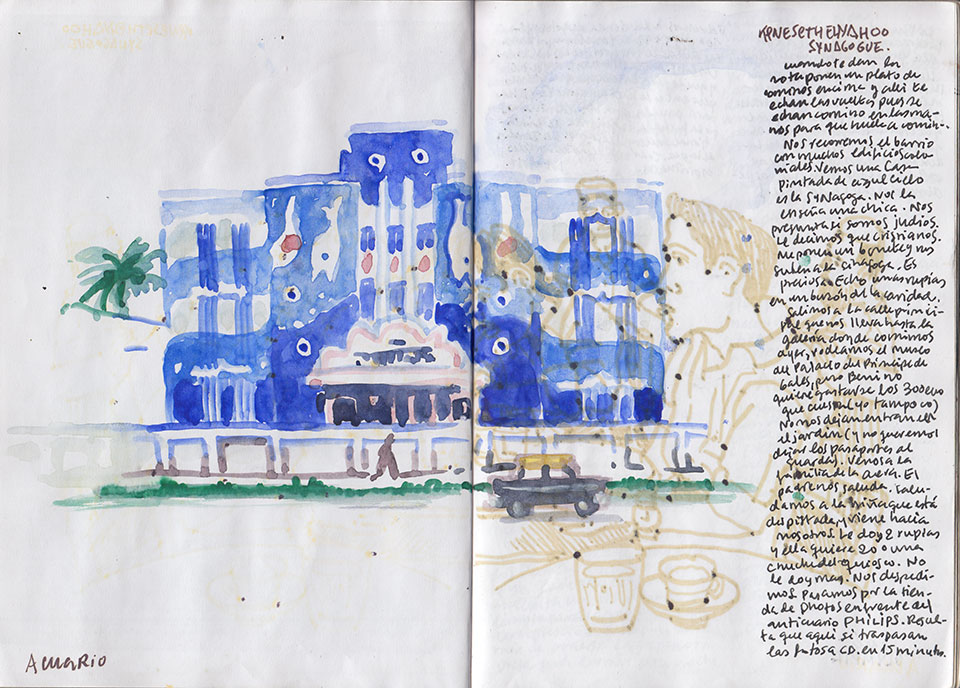 KENESETH ELIYAHOO
SYNAGOGUE.
cuando te dan la
nota ponen un plato de
cominos encima y alli te
echan las vueltas pues se
echan comino en las ma-
nos para que huela a comin-
Nos recorremos el barrio
con muchos edificios colo
niales. Vemos una Casa
pintada de azul cielo
es la SYNagoga. Nos la
enseña una chica. Nos
pregunta si somos judios.
Le decimos que cristianos.
me ponen un y nos
suben a la sinagoga. Es
preciosa. Echo unas rupias
en un buzón de la caridad.
Salimos a la calle princi-
pal que nos lleva hasta la
galeria donde comimos
ayer, rodeamos el museo
del Palacio del Principe de
Gales, pero Beni no
quiere gastarse los 300
que cuesta (yo tampoco)
No nos dejan entrar en
el jardin (y no queremos
dejar los pasaportes al
guarda). Vemos a la
familia de la acera. El
padre nos saluda. Salu-
damos a la niña que está
despistada, y viene hacia
nosotros. Le doy 2 rupias
y ella quiere 20 o una
chuche del quiosco. No
le doy mas. Nos despedi-
mos. Pasamos por la tien-
da de photos enfrente del
anticuario PHILIPS. Resul-
ta que aqui si traspasan
las fotos a CD. en 15 minutos.
A MARIO